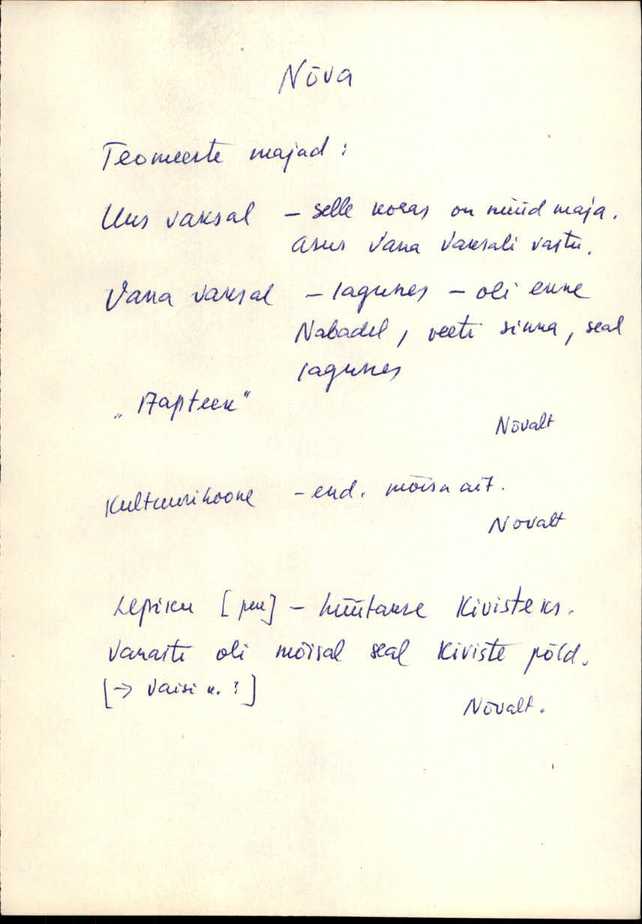 Nõva
Teomeeste majad:
Uus vaksal – selle koras on nüüd maja.
asus Vana Vaksali vastu.
Vana vaksal – lagunes – oli enne
Nabadel, veeti sinna, seal
lagunes
„Apteek"
Nõvalt
Kultuurihoone – end. mõisa ait.
Novalt
Lepiku [per] – hüütakse Kivisteks.
Vanasti oli mõisal seal Kiviste põld.
[→ Vaisi k. ?]
Nõvalt.